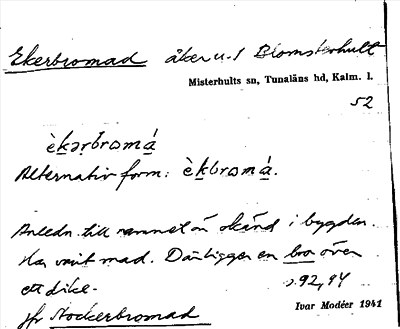 Ekerbromad åker u. S Blomsterhult
Misterhults sn, Tunaläns hd, Kalm. l.
52
èkərbromá
Alternativ form: èkbromá.
Anledn. till namnet är okänd i bygden.
Har varit mad. Där ligger en bro över
ett dike.
s. 92, 94
Ivar Modéer 1941
jfr Stockerbromad